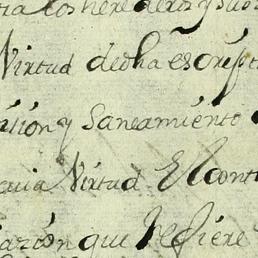 los herederos y sus
Virtud dedha escript
ision y Saneamiento
cuia Virtud El cont
razon que Refiere